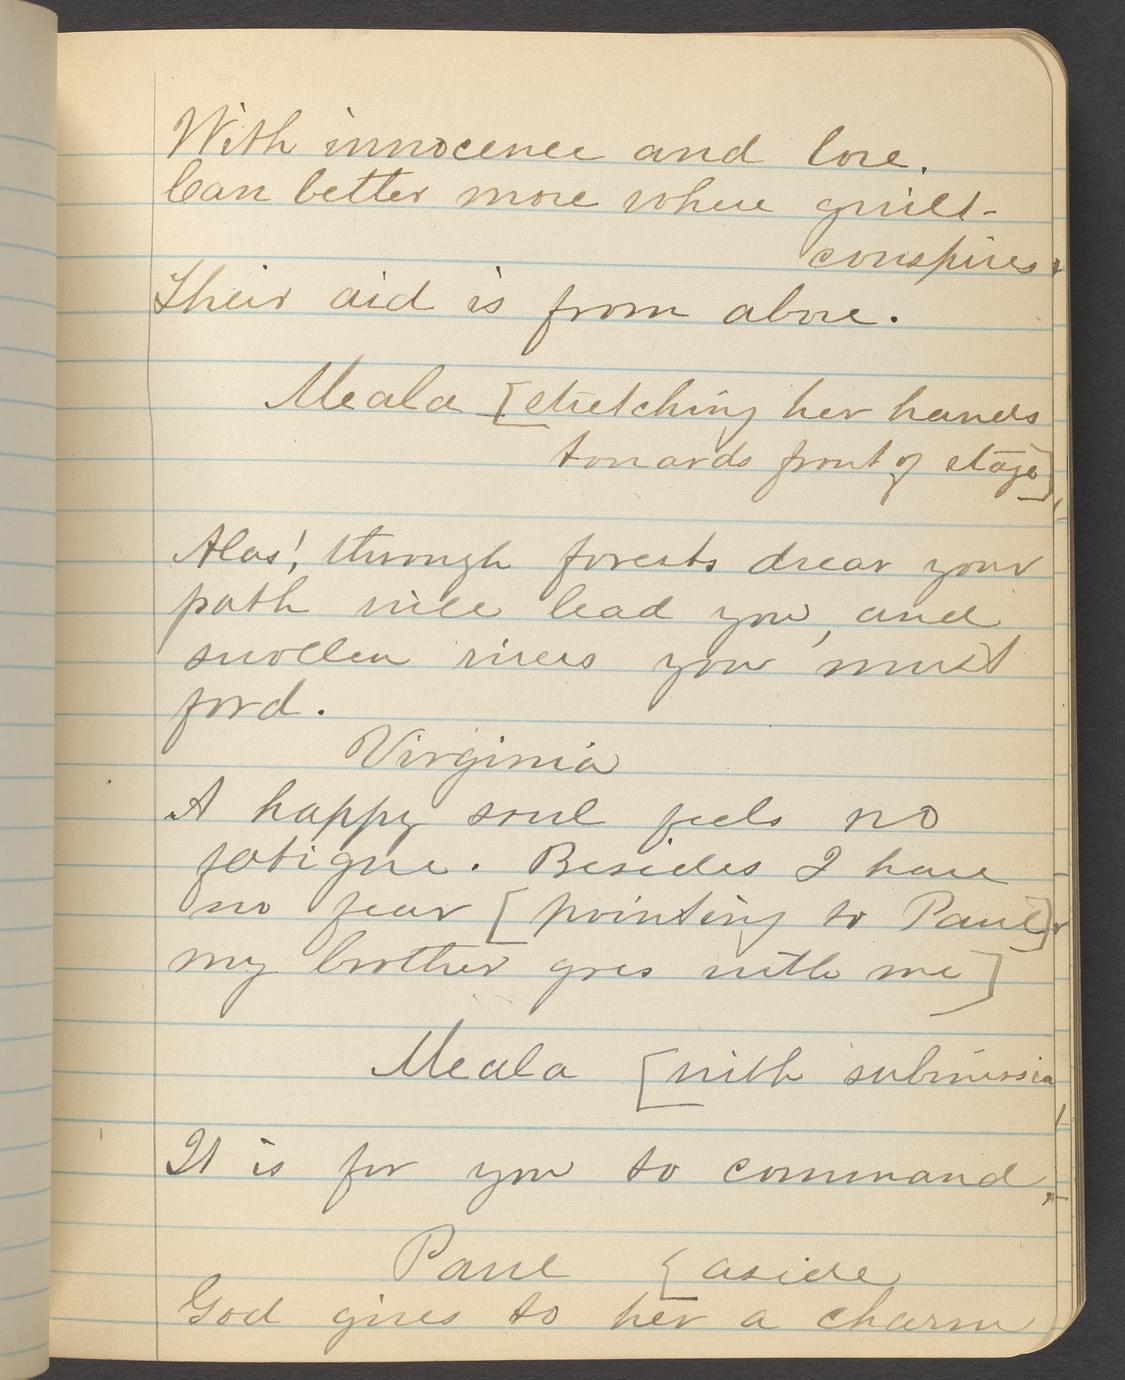 With innocence and love.
Can better move where guilt
conspires,
Their aid is from above.
Meala [stretching her hands
towards front of stage]
Alas! through forests drear your
path will lead you, and
swollen rivers you must
ford.
Virginia
A happy soul feels no
fatigue. Besides I have
no fear [pointing to Paul]
my brother goes with me]
Meala [with submission
It is for you to command.
Paul [aside
God gives to her a charm